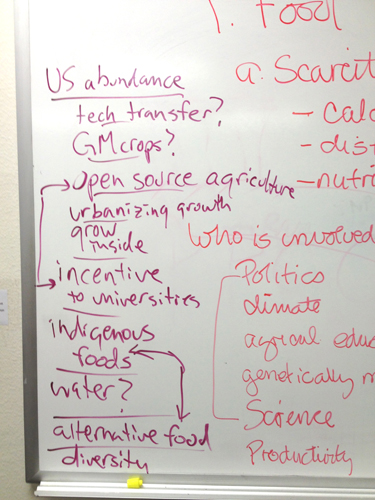 US abundance
tech transfer?
GM crops?
Open source agriculture
urbanizing growth
grow
inside
incentive
to universities
indigenous
foods
water?
alternative food
diversity
1. Food
a. Scarcit
- Calo
- dist
- nutri
Who is involved
Politics
climate
agricul educ
genetically m
Science
Productivity